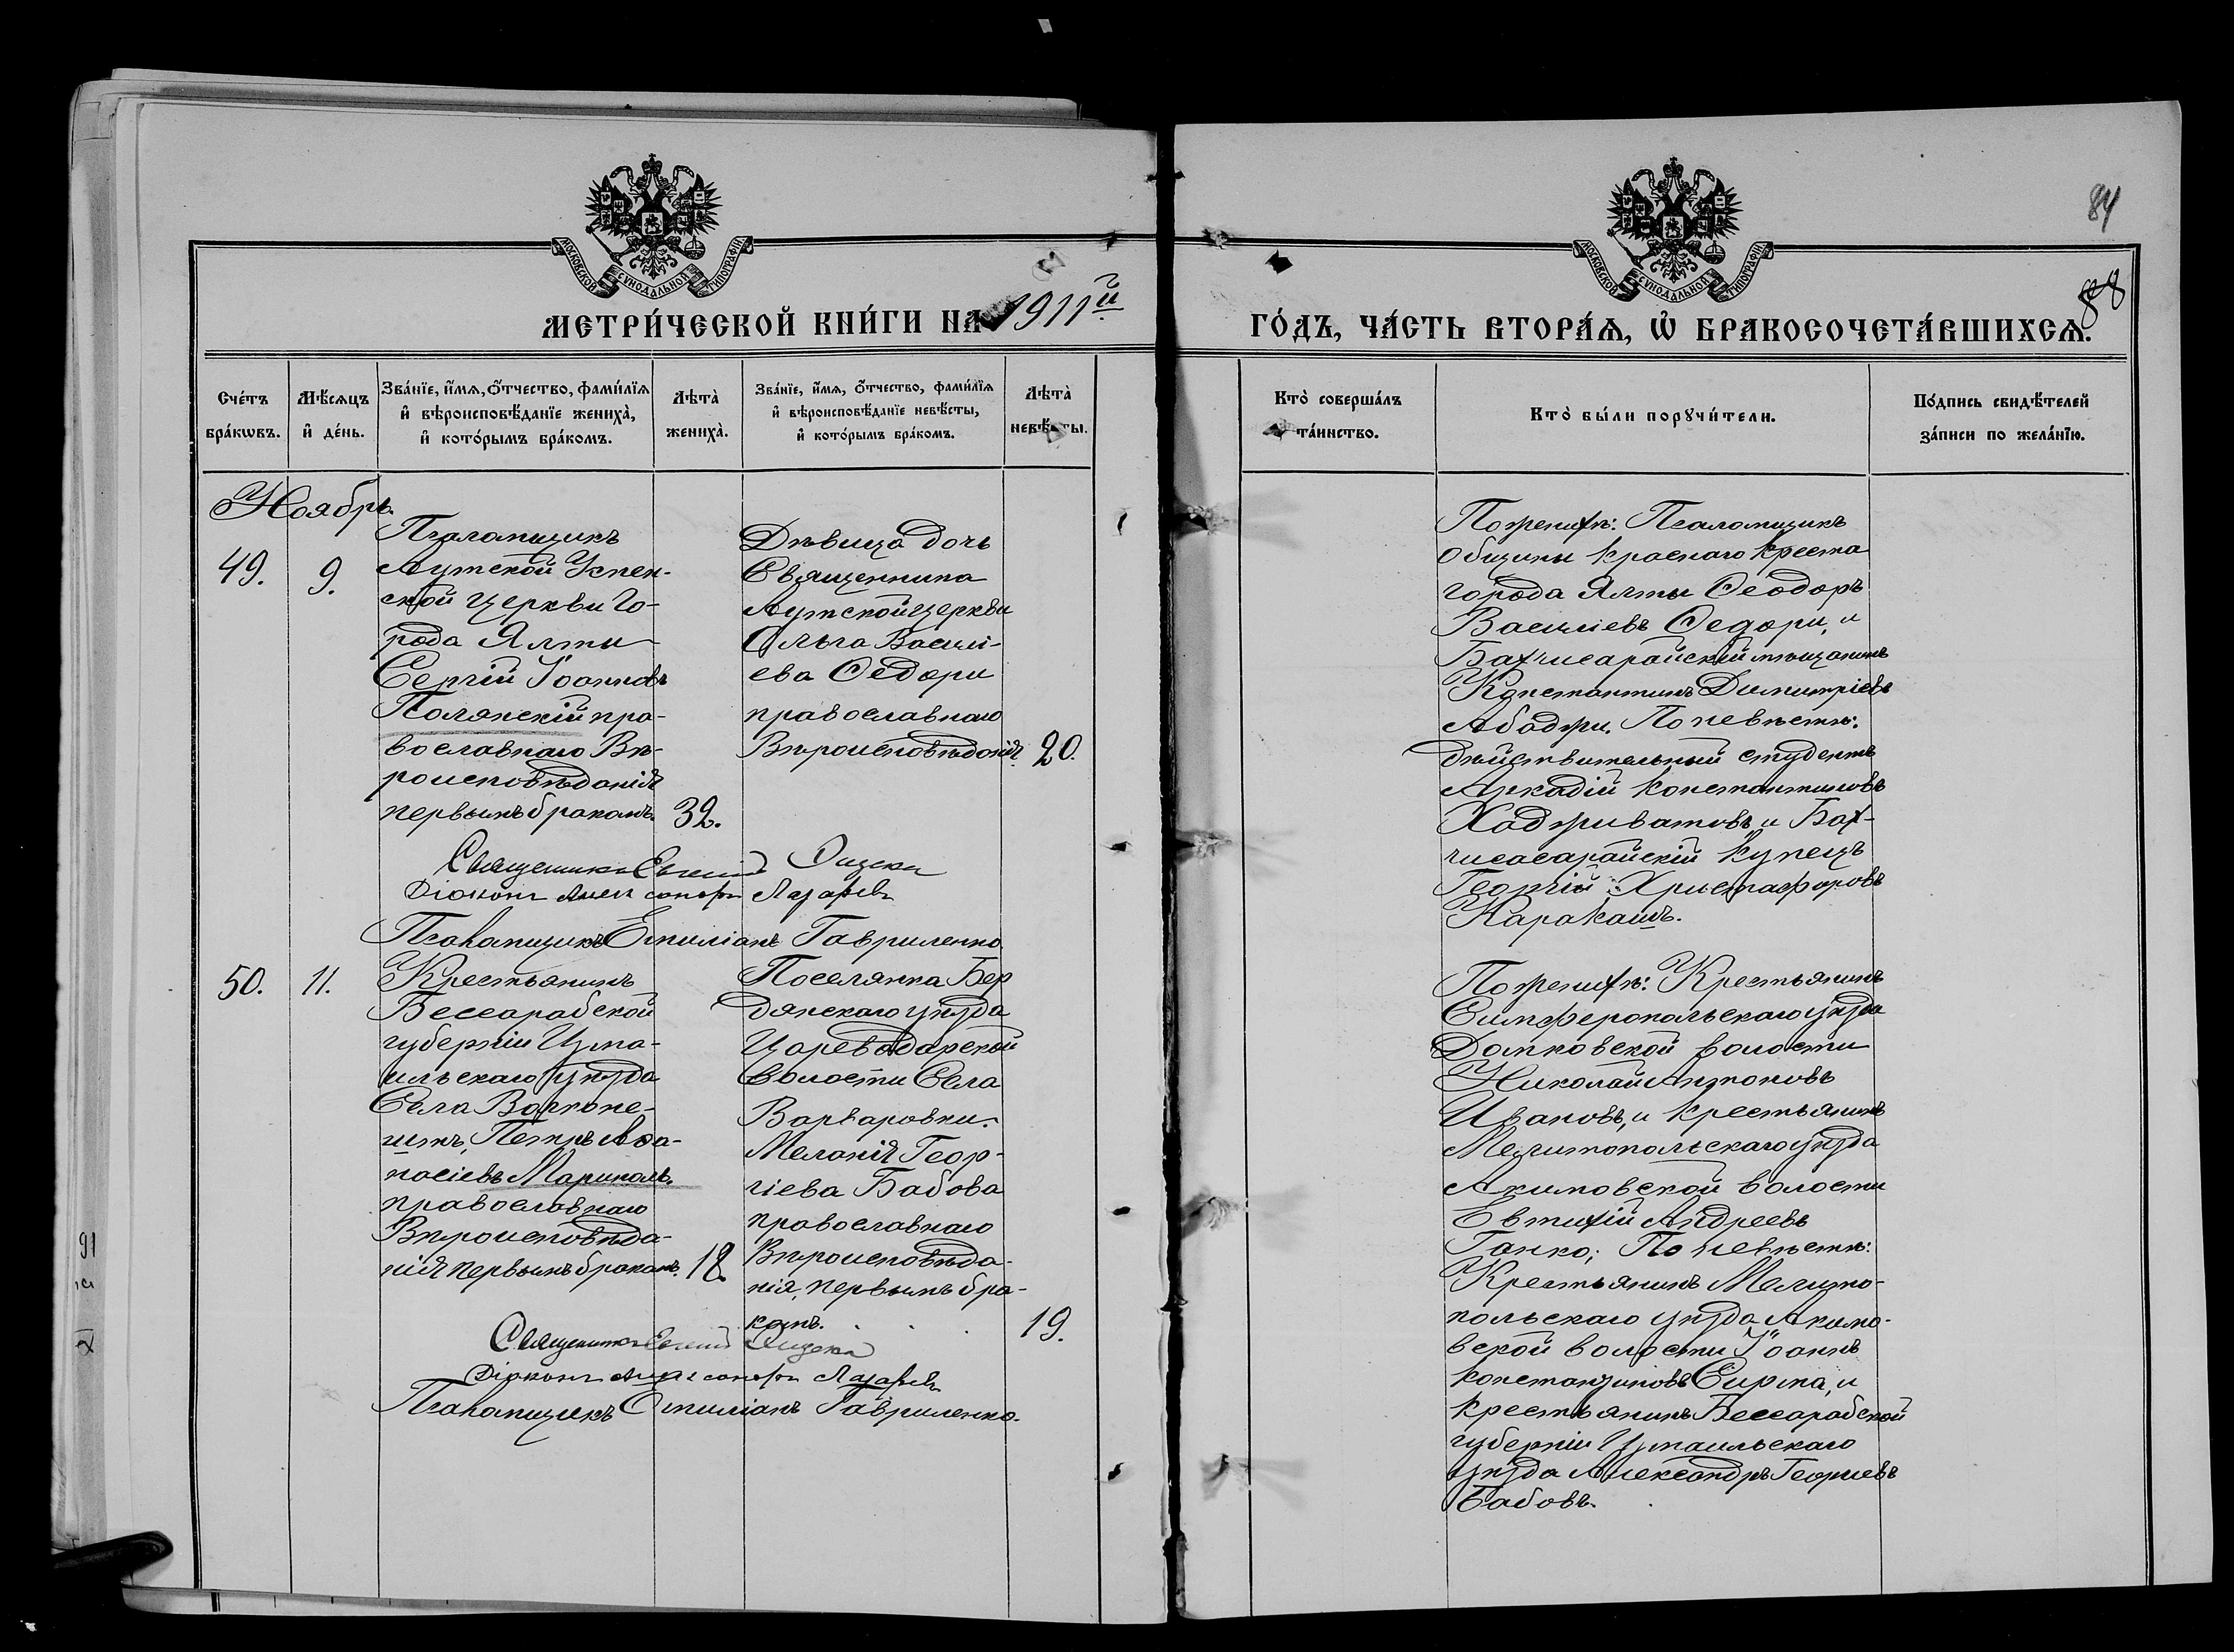 84
88
МОСКОВСКОЙ СѴНОДАЛЬНОЙ ТИПОГРАФІИ
МОСКОВСКОЙ СѴНОДАЛЬНОЙ ТИПОГРАФІИ
МЕТРИ́ЧЕСКОЙ КНИ́ГИ НА 1911й
ГО́ДЪ, ЧА́СТЬ ВТОРА́Ѧ, Ѡ҆ БРАКОСОЧЕТА́ВШИХСѦ.
Счéтъ бра́кѡвъ.
Мѣ́сяцъ и҆ де́нь.
Зва́нїе, и҆́мя, ѻ҆́тчество, фами́лїя
и҆ вѣроисповѣ́данїе жениха̀,
и҆ кото́рымъ бра́комъ.
Лѣта̀ жениха̀.
Зва́нїе, и҆́мя, ѻ҆́тчество, фами́лїя
и҆ вѣроисповѣ́данїе невѣ́сты,
и҆ кото́рымъ бра́комъ.
Лѣта̀ невѣ́сты.
Кто̀ соверша́лъ та́инство.
Кто̀ бы́ли порꙋчи́тели.
По́дпись свидѣ́телей за́писи по жела́нїю.
Ноябрь.
49.
9.
Псаломщикъ
Аутской Успен-
ской церкви го-
рода Ялты
Сергій Іоанновъ
Полянскій пра-
вославнаго Вѣ-
роисповѣданія
первымъ бракомъ. 32.
Дѣвица дочь
Священника
Аутской церкви
Ольга Васили-
ева Седори
православнаго
Вѣроисповѣданія. 20.
Священникъ Евгеній
Діаконъ Александръ Лазаревъ
Псаломщикъ Емиліанъ Гавриленко
По женихѣ: Псаломщикъ
Общины Краснаго Креста
города Ялты Ѳеодоръ
Василіевъ Седори, и
Бахчисарайскій мѣщанинъ
Константинъ Димитріевъ
Абаджи. По невѣстѣ:
дѣйствительный студентъ
Аркадій Константиновъ
Хадживатовъ и Бах-
чисасарайскій купецъ
Георгій Христафоровъ
Каракашъ.
50.
11.
Крестьянинъ
Бессарабской
губерніи Изма-
ильскаго уѣзда
Села Волконе-
штъ, Петръ Аѳа-
насіевъ Мариполь
православнаго
Вѣроисповѣда-
нія первымъ бракомъ. 18.
Поселянка Бер
дянскаго уѣзда
Цареводарской
Волости Села
Варваровки.
Меланія Геор-
гіева Бабова
православнаго
Вѣроисповѣда-
нія, первымъ бра-
комъ. 19.
Священникъ Евгеній
Діаконъ Александръ Лазаревъ
Псаломщикъ Емиліанъ Гавриленко.
По женихѣ: Крестьянинъ
Симферопольскаго уѣзда
Николай Антоновъ
Ивановъ, и крестьянинъ
Мелитопольскаго уѣзда
Акимовской волости
Евтихій Андреевъ
Ганко; По невѣстѣ:
Крестьянинъ Мелито-
польскаго уѣзда Акимо-
вской волости Іоаннъ
Константиновъ Сирма, и
крестьянинъ Бессарабской
губерніи Измаильскаго
уѣзда Александръ Георгіевъ
Бабовъ.
91